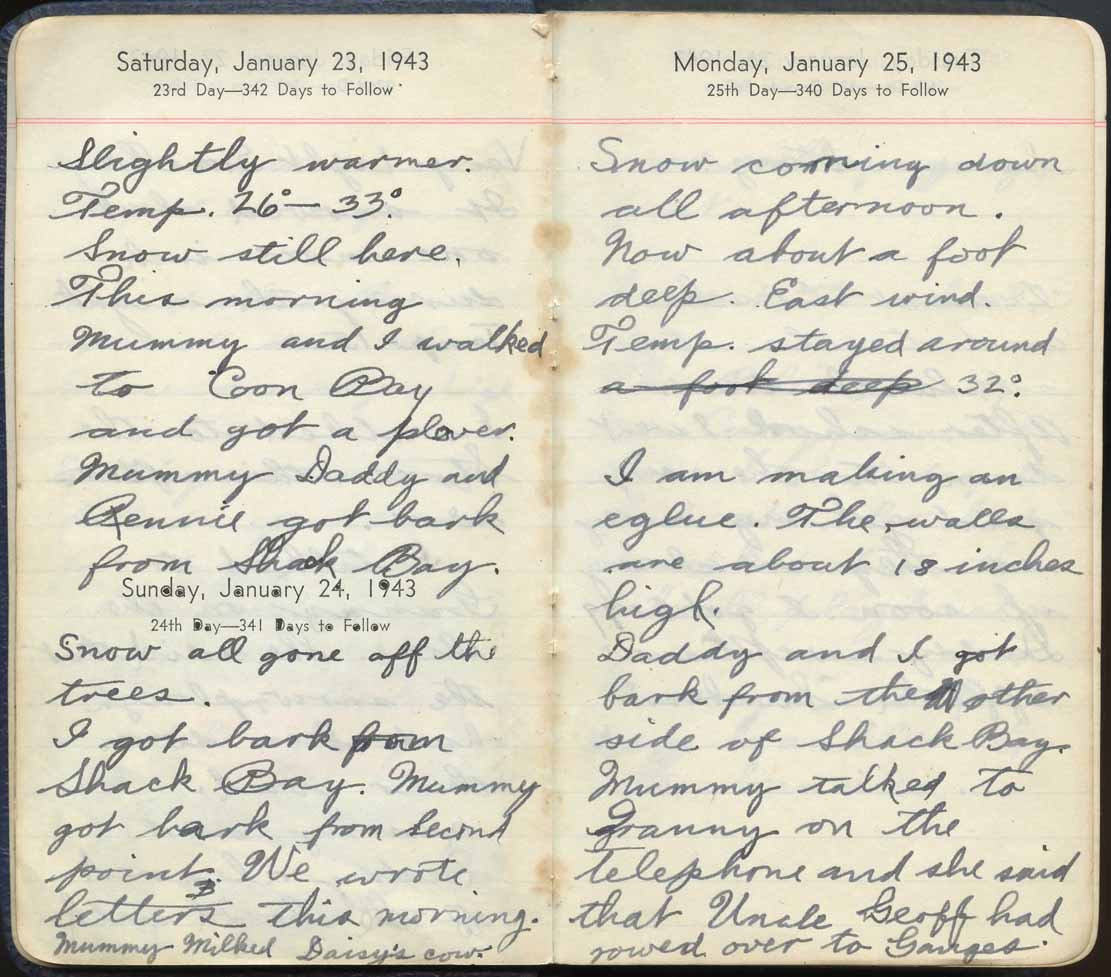 Saturday, January 23, 1943
23rd Day—342 Days to Follow
Slightly warmer.
Temp. 26°— 33°.
Snow still here.
This morning
Mummy and I walked
to 'Coon Bay
and got a plover.
Mummy Daddy and
Rennie got bark
from Shack Bay.
Sunday, January 24, 1943
24th Day—341 Days to Follow
Snow all gone off the
trees.
I got bark from
Shack Bay. Mummy
got bark from Second
point. We wrote
letters this morning.
Mummy Milked Daisy's cow.
Monday, January 25, 1943
25th Day—340 Days to Follow
Snow coming down
all afternoon.
Now about a foot
deep. East wind.
Temp. stayed around
a foot deep 32°.
I am making an
eglue. The walls
are about 18 inches
high.
Daddy and I got
bark from the other
side of Shack Bay.
Mummy talked to
Granny on the
telephone and she said
that Uncle Geoff had
rowed over to Ganges.